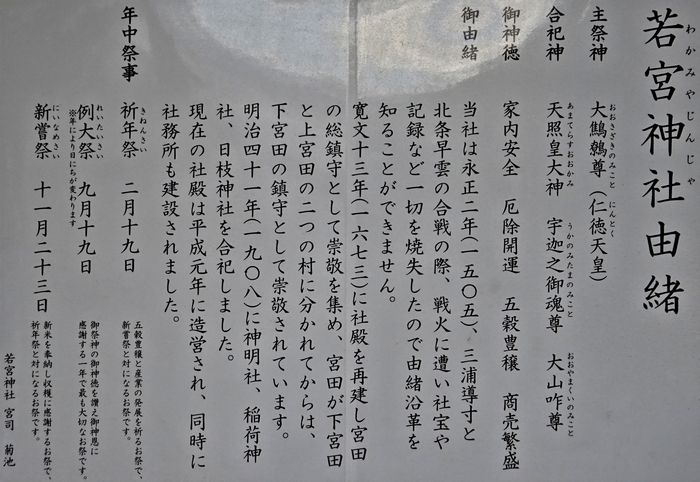 若宮神社由緒
わかみやじんじゃ
主祭神 大鷦鷯尊（仁徳天皇）
おおさざきのみこと にんとく
合祀神 天照皇大神 宇迦之御魂尊 大山咋尊
あまてらすおおかみ うかのみたまのみこと おおやまくいのみこと
御神徳 家内安全 厄除開運 五穀豊穣 商売繁盛
御由緒 当社は永正二年（一五〇五）、三浦導寸と
北条早雲の合戦の際、戦火に遭い社宝や
記録など一切を焼失したので由緒沿革を
知ることができません。
寛文十三年（一六七三）に社殿を再建し宮田
の総鎮守として崇敬を集め、宮田が下宮田
と上宮田の二つの村に分かれてからは、
下宮田の鎮守として崇敬されています。
明治四十一年（一九〇八）に神明社、稲荷神
社、日枝神社を合祀しました。
現在の社殿は平成元年に造営され、同時に
社務所も建設されました。
年中祭事 祈年祭 二月十九日
きねんさい
五穀豊穣と産業の発展を祈るお祭で、
新嘗祭と対になるお祭です。
例大祭 九月十九日
れいたいさい
※年により日にちが変わります
御祭神の御神徳を讃え御神恩に
感謝する一年で最も大切なお祭です。
新嘗祭 十一月二十三日
にいなめさい
新米を奉納し収穫に感謝するお祭で、
祈年祭と対になるお祭です。
若宮神社 宮司 菊池